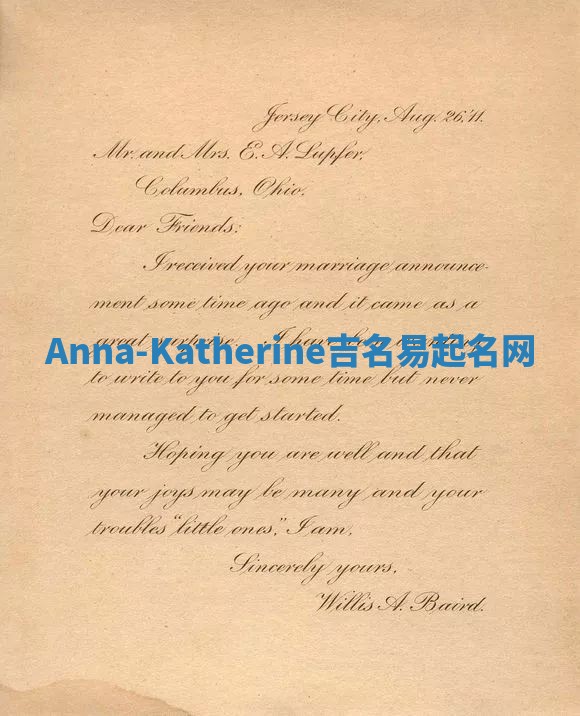 Jersey City, Aug. 26, '11.
Mr. and Mrs. E. A. Lupfer,
Columbus, Ohio.
Dear Friends:
I received your marriage announce-
ment some time ago and it came as a
great surprise. I have
Anna-Katherine吉名易起名网
to write to you for some time but never
managed to get started.
Hoping you are well and that
your joys may be many and your
troubles "little ones," I am,
Sincerely yours,
Willis A. Baird.